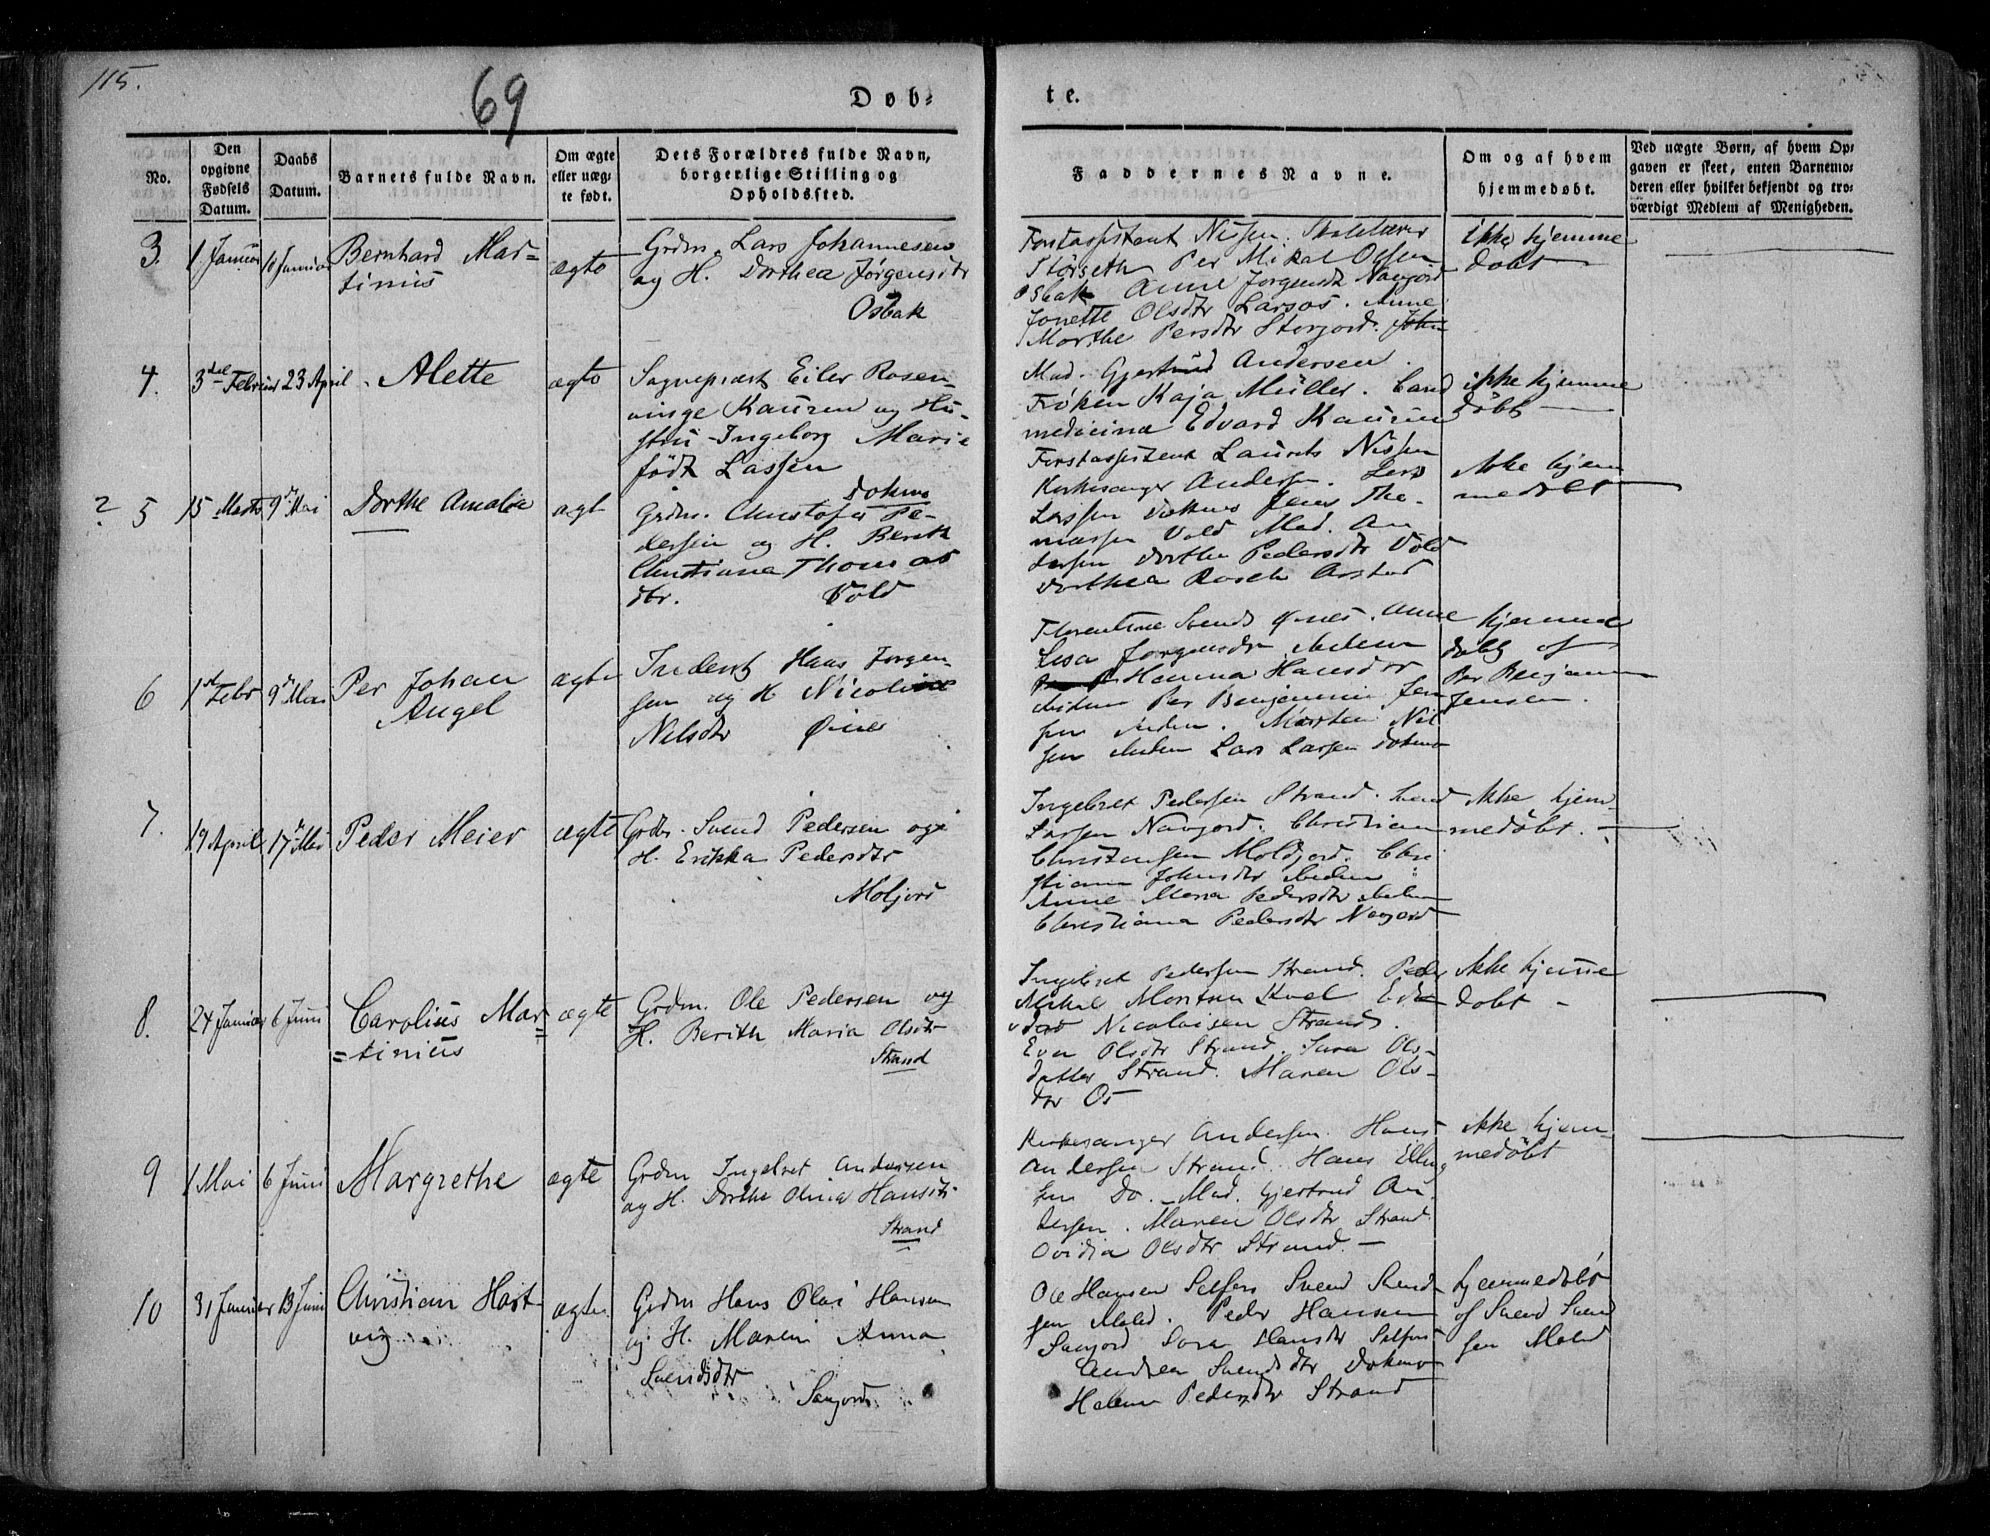 115.
69
Døb-
te.
No.
Den
opgivne
Fødsels
Datum.
Daabs
Datum.
Barnets fulde Navn.
Om ægte
eller uæg-
te født.
Dets Forældres fulde Navn,
borgerlige Stilling og
Opholdssted.
Faddernes Navne.
Om og af hvem
hjemmedøbt.
Ved uægte Børn, af hvem Op-
gaven er skeet, enten Barnemo-
deren eller hvilket bekjendt og tro-
værdigt Medlem af Menigheden.
3.
1 Januar
Bernhard Mar-
tinius
ægte
Grdm. Lars Johannesen
og H. Dorthea Jørgensdtr
Osbak
Forstassistent Nissen. Skolelærer
Storseth Per Mikal Olsen
Osbak Anne Jørgensdtr Navjord
Jonette Olsdtr Larsos. Anne
Marthe Persdtr Storjord.
ikke hjemme
døbt
4.
3die Februar
23 April
Alette
ægte
Sognepræst Eiler Rosen-
vinge Kaurin og Hu-
stru Ingeborg Marie
født Lassen
Mad. Gjertrud Andersen.
Frøken Kaja Müller. Cand
medicina Edvard Kaurin
ikke hjemme
døbt
? 5
15 Marts
9de Mai
Dorthe Amalia
ægt
Dokmo
Grdm. Christofer Pe-
dersen og H. Berith
Christiana Thomas
dtr. Vold
Forstassistent Laurits Nissen
Kirkesanger Andersen. Lars
Larssen Dokmo Jens Tho-
massen Vold Mad. An
dersen Dorthe Pedersdtr Vold
Dorthea Rosch Arstad
ikke hjem
medøbt
6
1ste Febr
9de Mai
Per Johan
Angel
ægte
Inderst Hans Jørgen-
sen og H Nicoline
Nilsdtr Øines
Florentine Svends Øines. Anne
Lisa Jørgensdtr
Hanna Hansdtr
Per Benjamin Jen
sen. Morten Nil
sen Lars Larsen Dokmo
hjemme
døbt af
Per Benjamin
Jensen.
7.
19 April
17de Mai
Peder Meier
ægte
Grdbr. Svend Pedersen og
H. Erikka Pedersdtr
Moljord
Ingebret Pedersen Strand. Svend
Larsen Navjord. Christian
Christensen Moldjord. Chri
stiane Johnsdtr
Anne Maria Pedersdtr
Christiana Pedersdtr Navjord
ikke hjem-
medøbt.
8.
24 Januar
6 Juni
Carolius Mar-
=tinius
ægte
Grdm. Ole Pedersen og
H. Berith Maria Olsdtr
Strand
Ingebret Pedersen Strand. Peder
Mikal Mortsen Kvel Ed-
vard Nicolaisen Strand.
Even Olsdtr Strand. Sara Ols-
datter Strand. Maren Ols-
dtr Os
ikke hjemme
døbt -
9
1 Mai
6 Juni
Margrethe
ægte
Grdm Ingebret Andersen
og H. Dorthe Olina Hansdtr
Strand
Kirkesanger Andersen. Hans
Andersen Strand. Hans Elling
sen Do. Mad. Gjertrud An-
dersen. Maren Olsdtr Strand
Ovidia Olsdtr Strand. -
ikke hjem-
medøbt
10
31 Januar
13 Juni
Christian Hart-
vig
ægte.
Grdm Hans Olai Hansen
og H. Maren Anna
Svendsdtr
Sanjord.
Ole Hansen Selfors Svend Svend-
sen Mold. Peder Hansen
Sanjord Sara Hansdtr Selfors
Andrea Svendsdtr Dokmo
Helene Pedersdtr Strand
hjemmedøbt
af Svend Svend
sen Mold